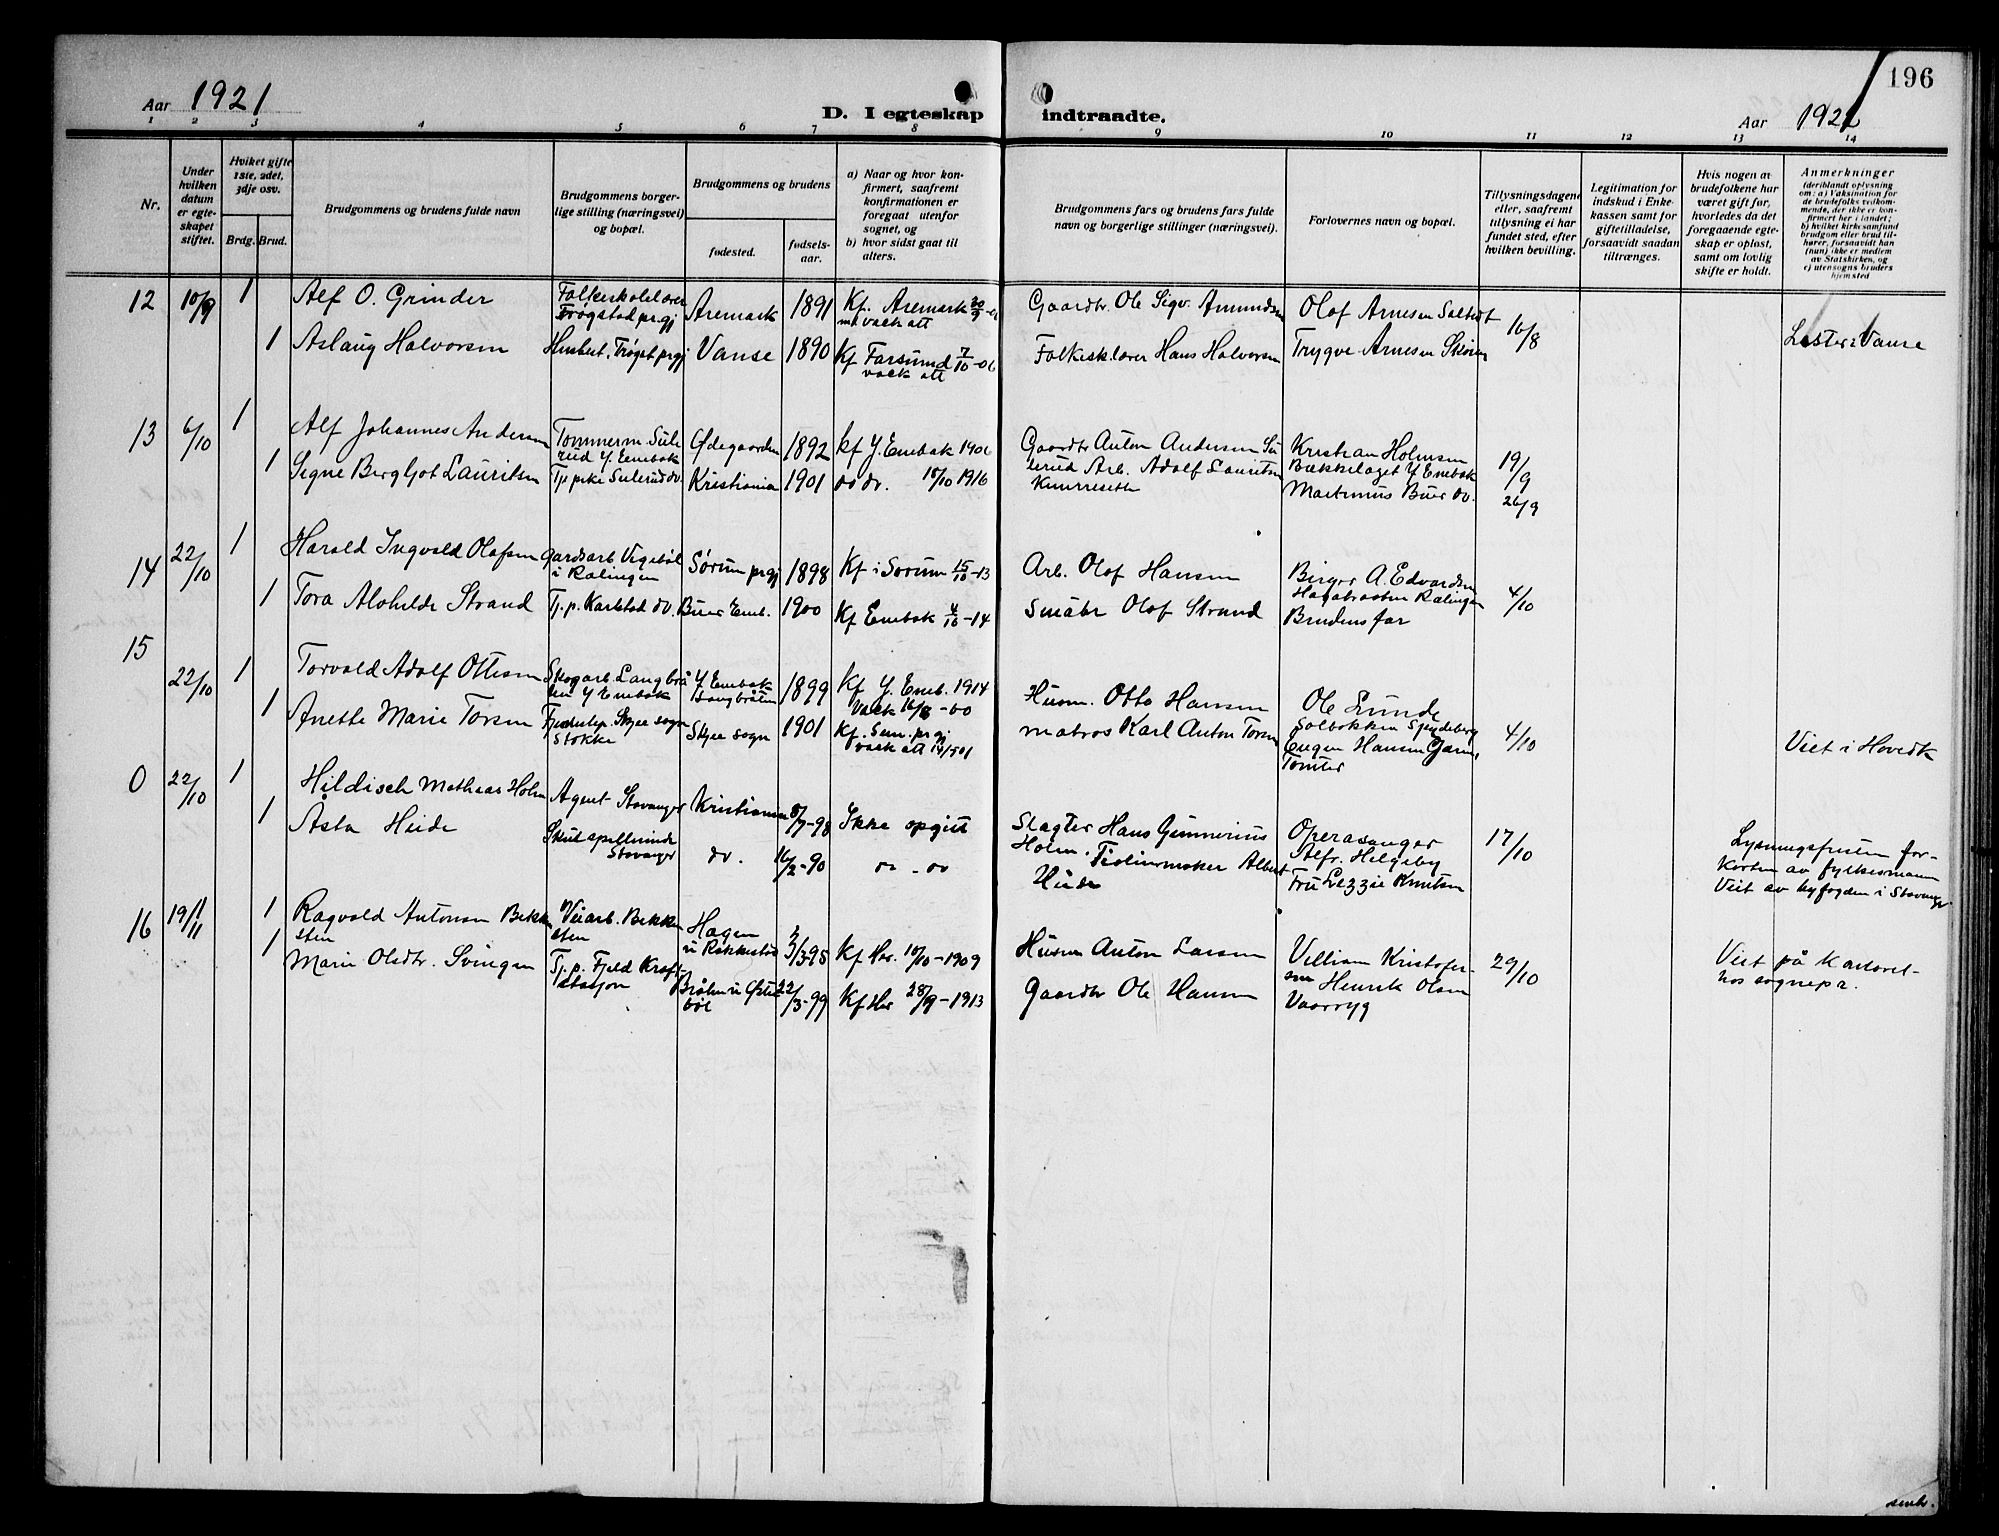 196
Aar 1921
D. I egteskap indtraadte.
Aar 1921
1 2 3 4 5 6 7 8 9 10 11 12 13 14
Nr.
Under hvilken datum er egteskapet stiftet.
Hviket gifte 1ste, 2det, 3dje osv.
Brdg. Brud.
Brudgommens og brudens fulde navn
Brudgommens borgerlige stilling (næringsvei) og bopæl.
Brudgommens og brudens
fødested.
fødselsaar.
a) Naar og hvor konfirmert, saafremt konfirmationen er foregaat utenfor sognet, og
b) hvor sidst gaat til alters.
Brudgommens fars og brudens fars fulde navn og borgerlige stillinger (næringsvei).
Forlovernes navn og bopæl.
Tillysningsdagene eller, saafremt tillysning ei har fundet sted, efter hvilken bevilling.
Legitimation for indskud i Enkekassen samt for giftetilladelse, forsaavidt saadan tiltrænges.
Hvis nogen av brudefolkene har været gift før, hvorledes da det foregaaende egteskap er opløst, samt om lovlig skifte er holdt.
Anmerkninger
(deriblandt oplysning om: a) Vaksination for de brudefolks vedkommende, der ikke er konfirmert her i landet; b) hvilket kirkesamfund brudgom eller brud tilhører, forsaavidt han (hun) ikke er medlem av Statskirken, og c) utensogns bruders hjemsted
12 10/9 1 Alf O. Grinder Folkeskolelærer Trøgstad prgj Aremark 1891 Kf. Aremark m vack att Gaardbr Ole Sigv. Amundsen Olaf Arnesen 16/8
1 Aslaug Halvorsen Husbest. Trøgst prgj Vanse 1890 Kf Farsund 7/10-06 vack att Folkesk.lærer Hans Halvorsen Trygve Arnesen Vanse
13 6/10 1 Alf Johannes Andersen Tømmerm. Sulerud Y. Enebak Ødegaarden 1892 kf Y. Enebak 1906 Gaardbr Anton Andersen Sulerud Kristian Holmsen Bækkelaget Y Enebak 19/9
1 Signe Bergljot Lauritsen Tj pike Sulerud do. Kristiania 1901 do do. 15/10 1916 Arb. Adolf Lauritsen Martinius Buer do. 26/9
14 22/10 1 Harald Ingvald Olafsen Gardsarb i Rælingen Sørum prgj 1898 Kf i Sørum 15/10-13 Arb. Olaf Hansen Birger A. Edvardsen Rælingen 4/10
1 Tora Alvhilde Strand Tj. p. Karlstad do. Buer Eneb. 1900 Kf Enebak 4/10-14 Småbr Olaf Strand Brudens far
15 22/10 1 Torvald Adolf Ottesen Skogarb. Langbråten Y Enebak Y. Enebak Langbråten 1899 Kf Y. Eneb. 1914 Vack 16/8-00 Husm. Otto Hansen Ole Lunde Spydeberg 4/10
1 Anette Marie Torsen Skjee sogn Stokke Skjee sogn 1901 Kf. Sem prgj vack att matros Karl Anton Torsen Eugen Hansen Tomter Viet i Hovedk
0 22/10 1 Hildisch Mathias Holm Agent Stavanger Kristiania 8/7-98 Ikke opgitt Slagter Hans Gunnerius Holm. Operasanger Alfr. Helgeby 17/10 Lysningsfristen forkortet av fylkesmann
1 Åsta Heide Skuespillerinde Stavanger do. 16/2-90 do - do Fiolinmaker Albert Heide Fru Lizzie Knutsen Viet av byfogden i Stavanger
16 19/11 1 Ragvald Antonsen Bekkesten Veiarb. Bekkesten Hagen i Rakkestad 3/3-95 Kf Her. 10/10-1909 Husm Anton Larsen Villiam Kristofersen 29/10 Viet på Kontoret hos sognepr.
1 Marie Olsdtr. Svingen Tj. p. Fjeld Kraftstasjon Bråten i 22/3-99 Kf Her 28/9-1913 Gaardbr Ole Hansen Henrik Olsen Vaarryg